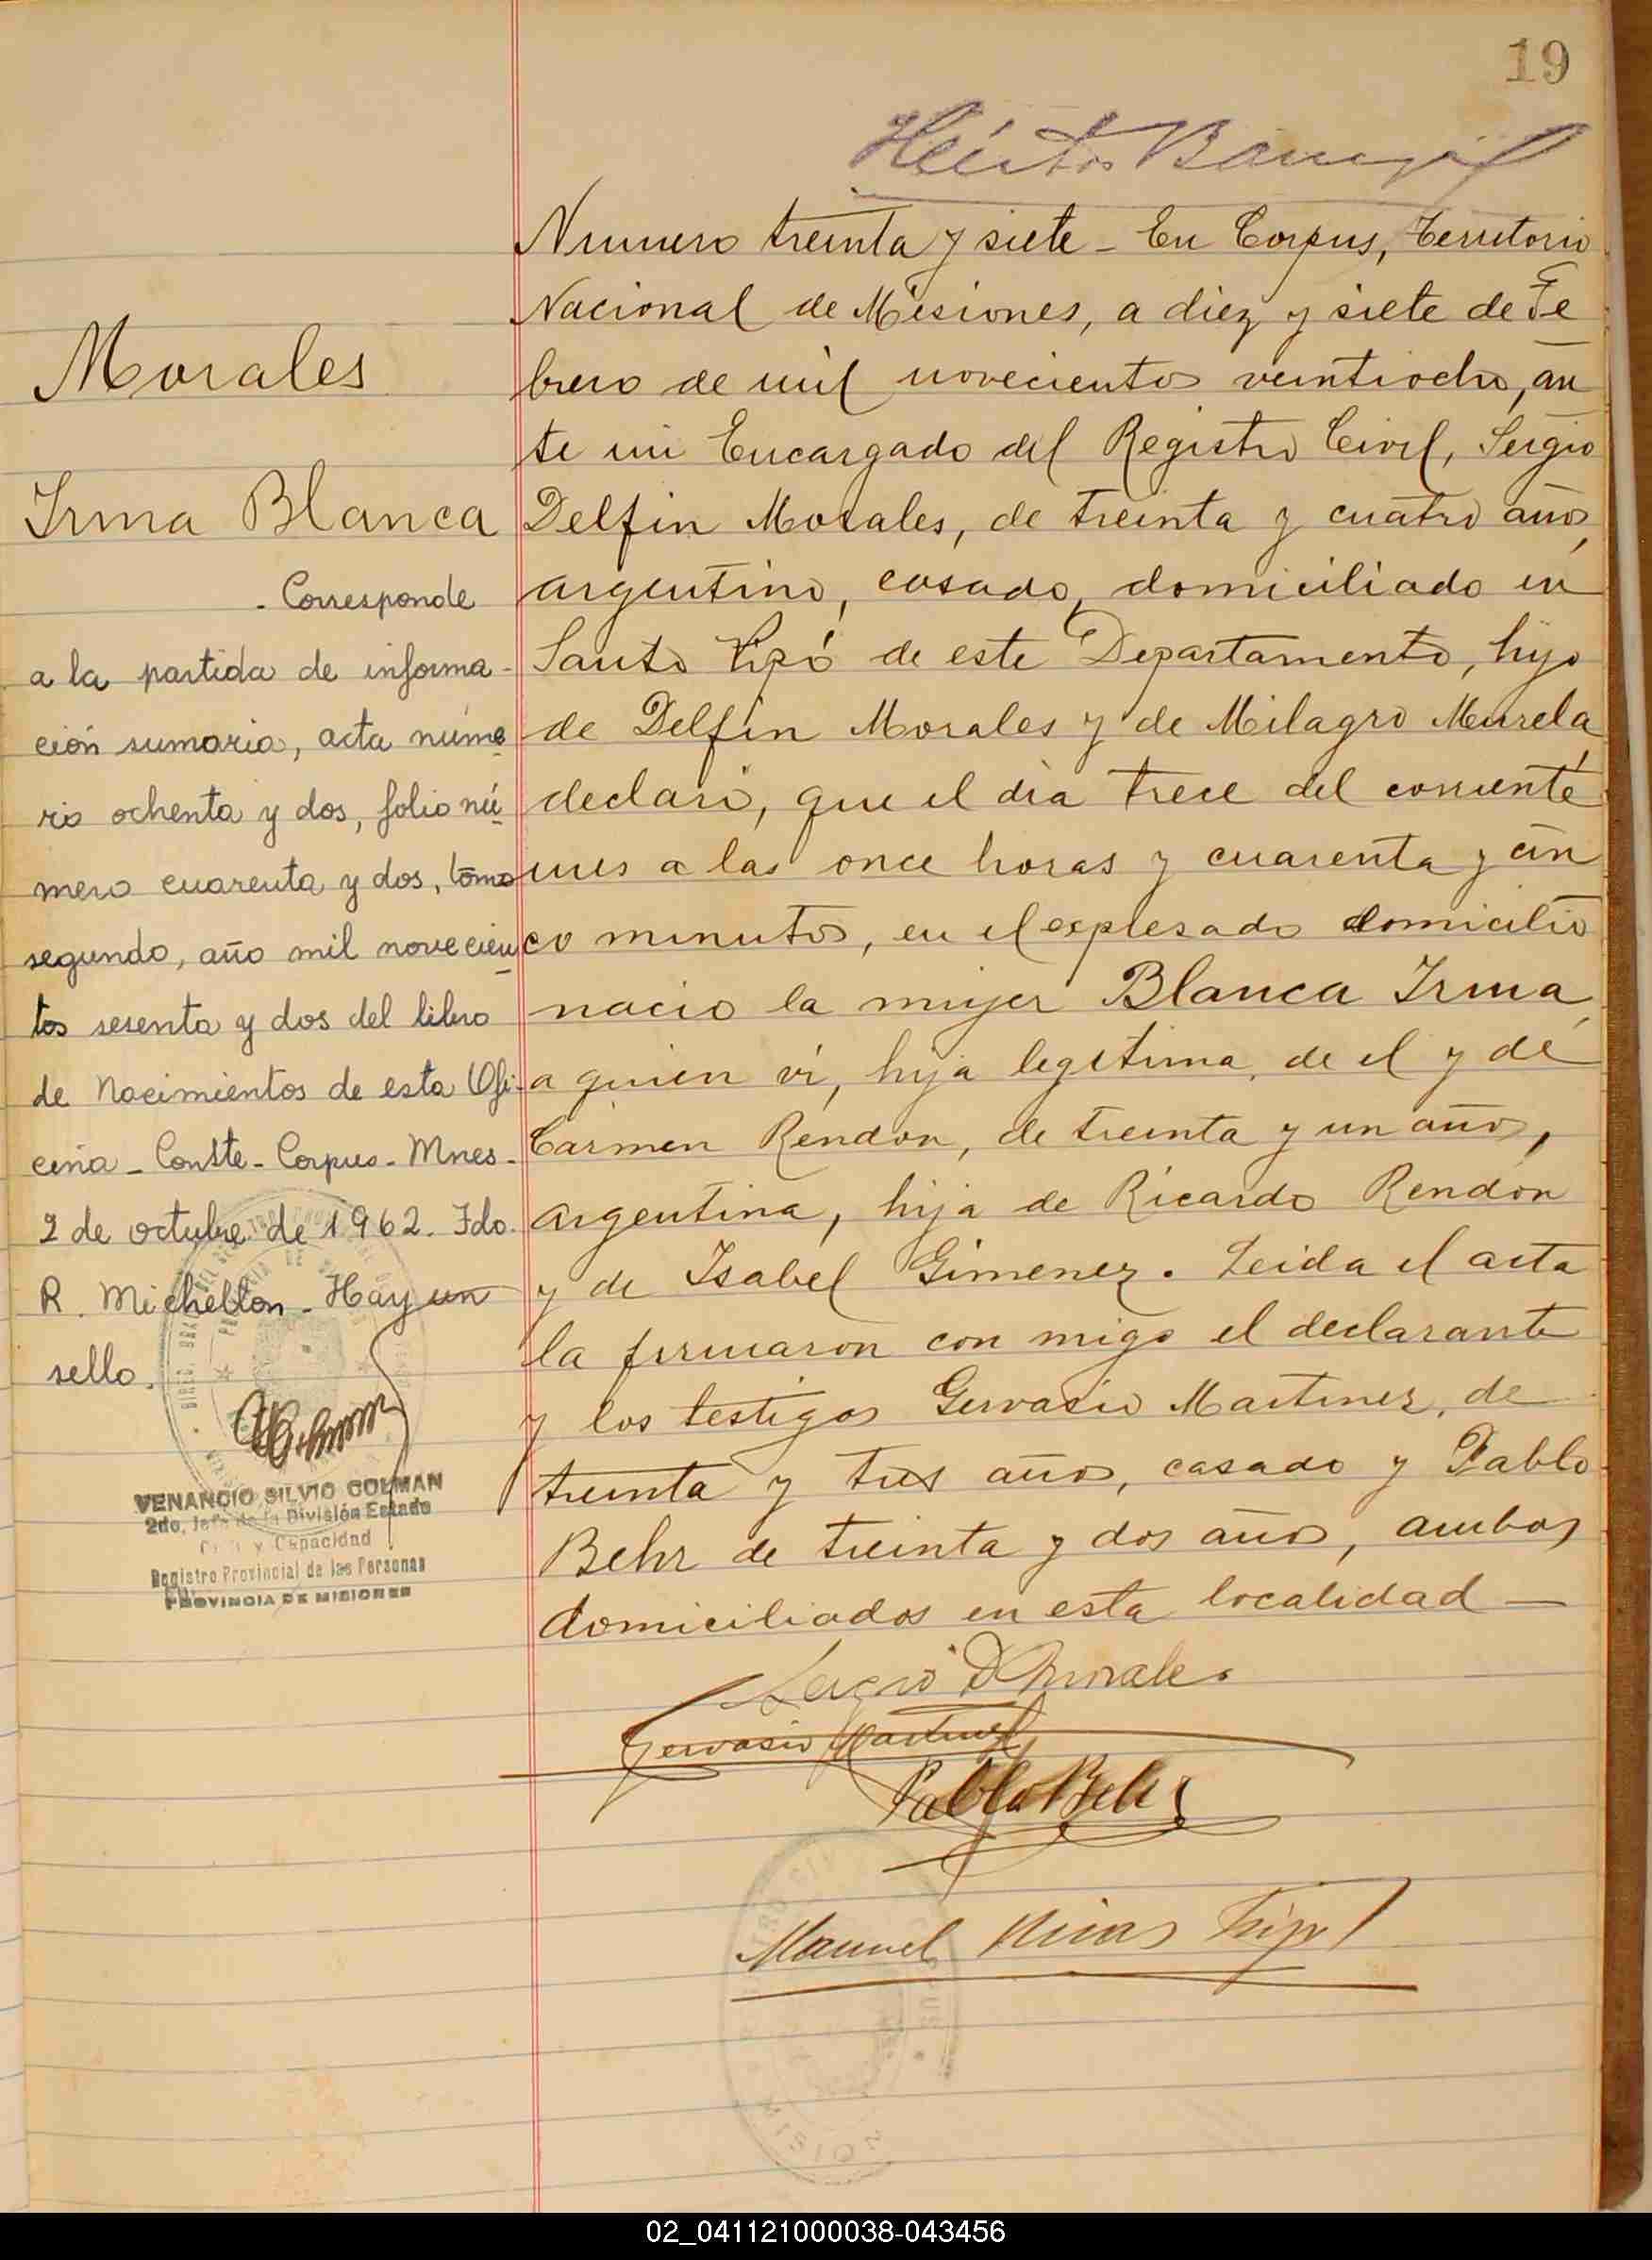 19
Numero treinta y siete - En Corpus, Territorio
Nacional de Misiones, a diez y siete de Fe
brero de mil novecientos veintiocho, an
te mi Encargado del Registro Civil, Sergio
Delfin Morales, de treinta y cuatro años,
argentino, casado, domiciliado en
Santo Pipó de este Departamento, hijo
de Delfin Morales y de Milagro Murela,
declaró, que el dia trece del corriente
mes a las once horas y cuarenta y cin
co minutos, en el expresado domicilio
nació la mujer Blanca Irma,
a quien vi, hija legitima de el y de
Carmen Rendon, de treinta y un años,
argentina, hija de Ricardo Rendón
y de Isabel Gimenez. Leida el acta
la firmaron con migo el declarante
y los testigos Gervasio Martinez, de
treinta y tres años, casado y Pablo
Behr de treinta y dos años, ambos
domiciliados en esta localidad —
Sergio D Morales
Gervasio Martinez
Pablo Behr
Manuel
Morales
Irma Blanca
- Corresponde
a la partida de informa-
ción sumaria, acta núme
ro ochenta y dos, folio nú
mero cuarenta y dos, tomo
segundo, año mil novecien
tos sesenta y dos del libro
de Nacimientos de esta Ofi-
cina - Conste - Corpus - Mnes-
2 de octubre de 1962. Fdo.
R. Michelton - Hay un
sello.
VENANCIO SILVIO COLMAN
2do. Jefe de la División Estado
Civil y Capacidad
Registro Provincial de las Personas
PROVINCIA DE MISIONES
02_041121000038-043456